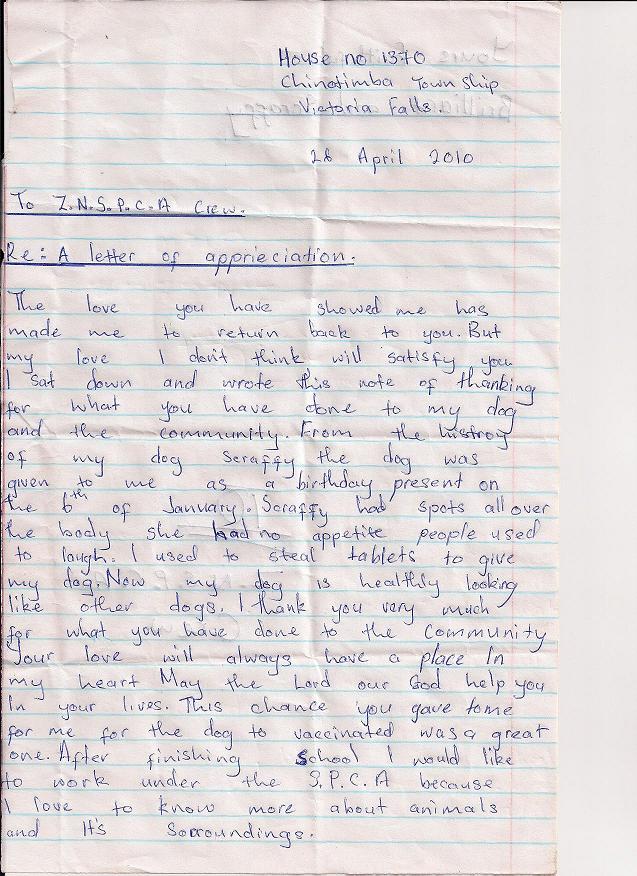 House no 1370
Chinotimba Township
Victoria Falls.
28 April 2010
To Z.N.S.P.C.A Crew.
Re: A letter of apprieciation.
The love you have showed me has
made me to return back to you. But
my love I don't think will satisfy you
I sat down and wrote this note of thanking
for what you have done to my dog
and the community. From the histroy
of my dog Scraffy the dog was
given to me as a birthday present on
the 6th of January. Scraffy had spots all over
the body she had no appetite people used
to laugh. I used to steal tablets to give
my dog. Now my dog is healthly looking
like other dogs. I thank you very much
for what you have done to the community
Your love will always have a place In
my heart May the Lord our God help you
In your lives. This chance you gave to me
for me for the dog to vaccinated was a great
one. After finishing school I would like
to work under the S.P.C.A because
I love to know more about animals
and It's Sorroundings.